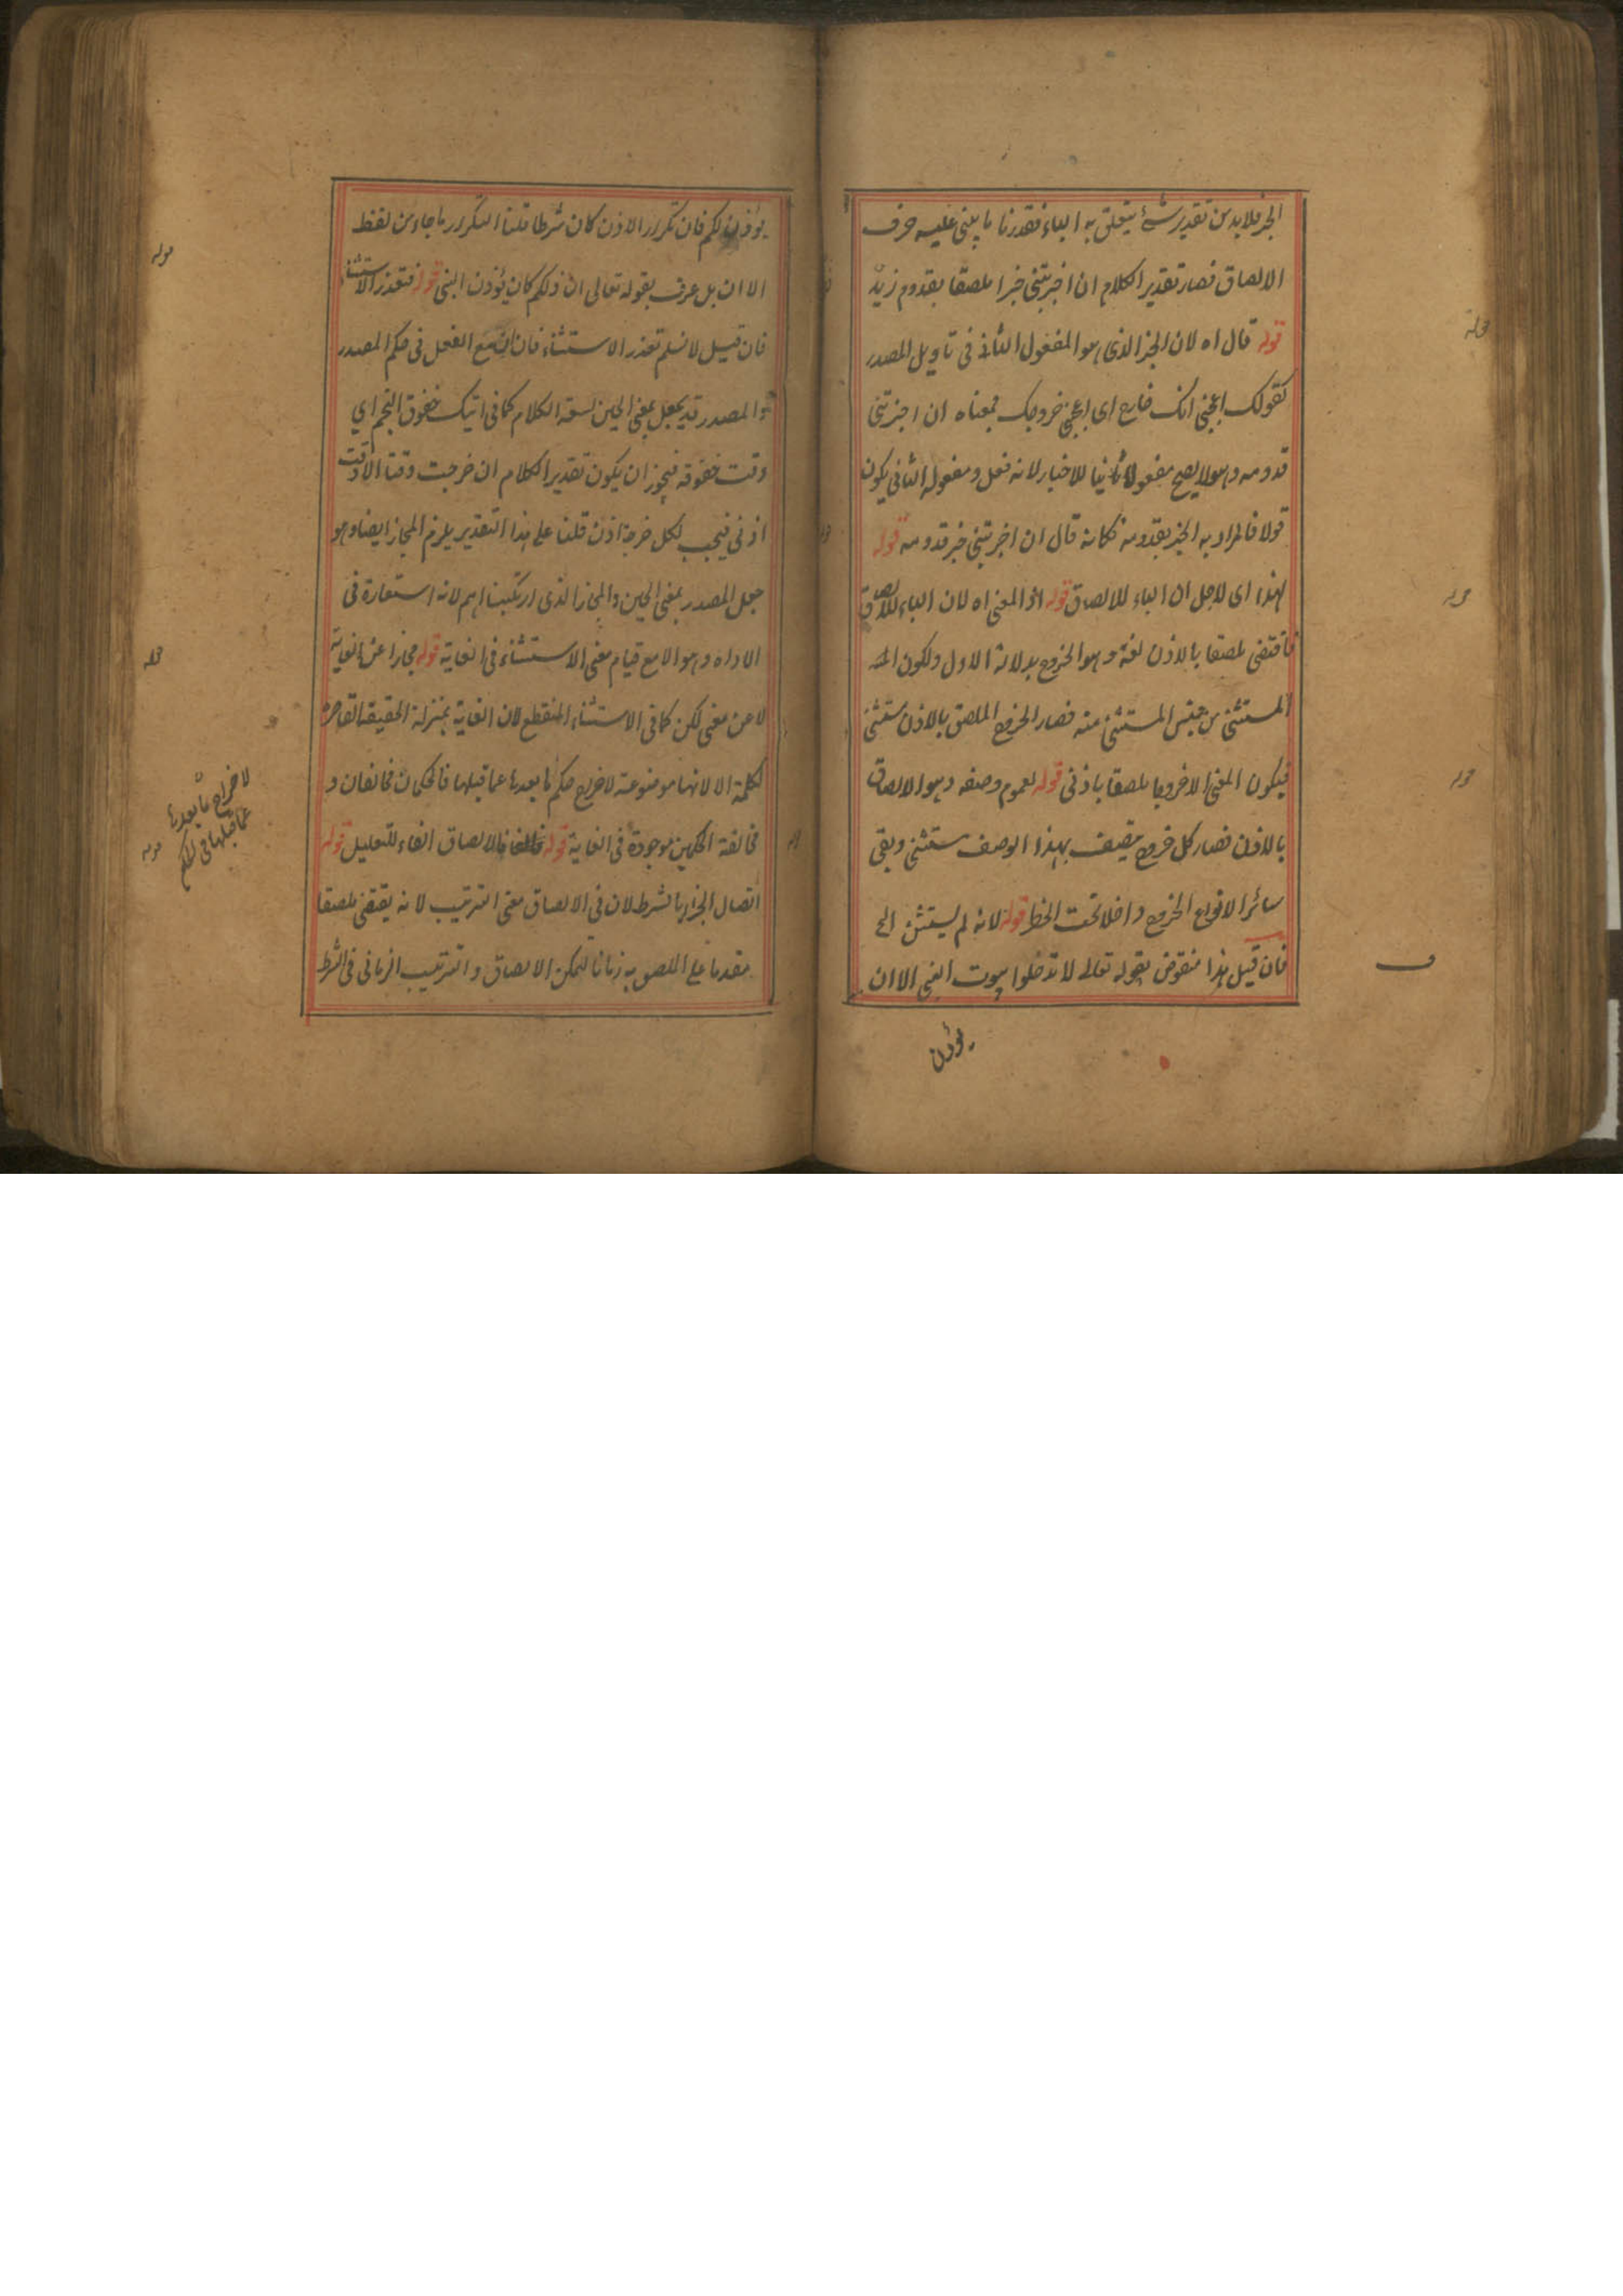 الجر فلا بد من تقدير شئ يتعلق به الباء فقدرنا ما يبنى عليه حرف
الالصاق فصار تقدير الكلام ان اخبرتنى خبرا ملصقا بقدوم زيد
قوله قال اه لان الخبر الذى هو المفعول الثانى فى تاويل المصدر
كقولك اعجبنى انك خارج اى اعجبنى خروجك فمعناه ان اخبرتنى
قدومه وهو لا يصح مفعولا ثانيا للاخبار لانه فعل ومفعوله الثانى يكون
قولا فالمراد به الخبر بقدومه فكانه قال ان اخبرتنى خبر قدومه قوله
لهذا اى لاجل ان الباء للالصاق قوله اذ المعنى اه لان الباء للالصاق
فاقتضى ملصقا بالاذن لغة وهو الخروج بدلالة الاول ولكون
المستثنى من جنس المستثنى منه فصار الخروج الملصق بالاذن مستثنى
فيكون المعنى الا خروجا ملصقا باذنى قوله لعموم وصفه وهو الالصاق
بالاذن فصار كل خروج يتصف بهذا الوصف مستثنى وبقى
سائر الانواع الخروج داخلا تحت الحظر قوله لانه لم يستثن الخ
فان قيل هذا منقوض بقوله تعالى لا تدخلوا بيوت النبى الا ان
يؤذن
يوذن لكم فان تكرار الاذن كان شرطا قلنا التكرار ما جاء من لفظ
الا ان بل عرف بقوله تعالى ان ذلكم كان يؤذى النبى قوله فتعذر الاستثناء
فان قيل لا نسلم تعذر الاستثناء فان ان مع الفعل فى حكم المصدر
والمصدر قد يجعل بمعنى الحين لسعة الكلام كما فى اتيك خفوق النجم اي
وقت خفوقه فيجوز ان يكون تقدير الكلام ان خرجت وقتا الا وقت
اذنى فيجب لكل خرجة اذن قلنا على هذا التقدير يلزم المجاز ايضا وهو
جعل المصدر بمعنى الحين والمجاز الذى ارتكبنا اهم لانه استعارة فى
الاداه وهو الا مع قيام معنى الاستثناء فى الغاية قوله مجازا عن الغاية
لا عن معنى لكن كما فى الاستثناء المنقطع لان الغاية بمنزلة الحقيقة القاصرة
لكلمة الا لانها موضوعة لاخراج حكم ما بعدها عما قبلها فالحكمان مخالفان و
مخالفة الحكمين موجودة فى الغاية قوله فالالصاق الفاء للتعليل قوله
اتصال الجزاء بالشرط لان فى الالصاق معنى الترتيب لانه يقتضى ملصقا
مقدما على الملصق به زمانا ليمكن الالصاق والترتيب الزمانى فى الشرط
لاخراج ما بعدها
عما قبلها فى الحكم